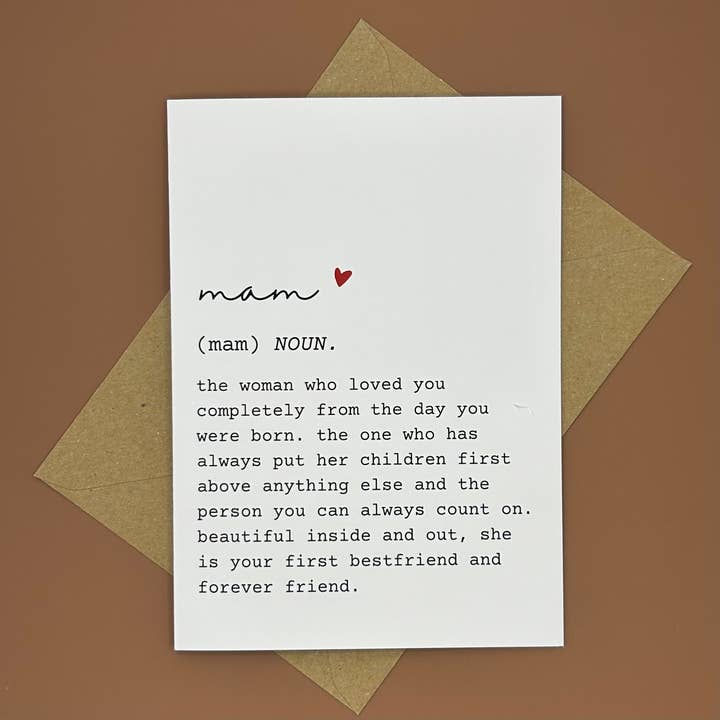 mam
(mam) NOUN.
the woman who loved you
completely from the day you
were born. the one who has
always put her children first
above anything else and the
person you can always count on.
beautiful inside and out, she
is your first bestfriend and
forever friend.